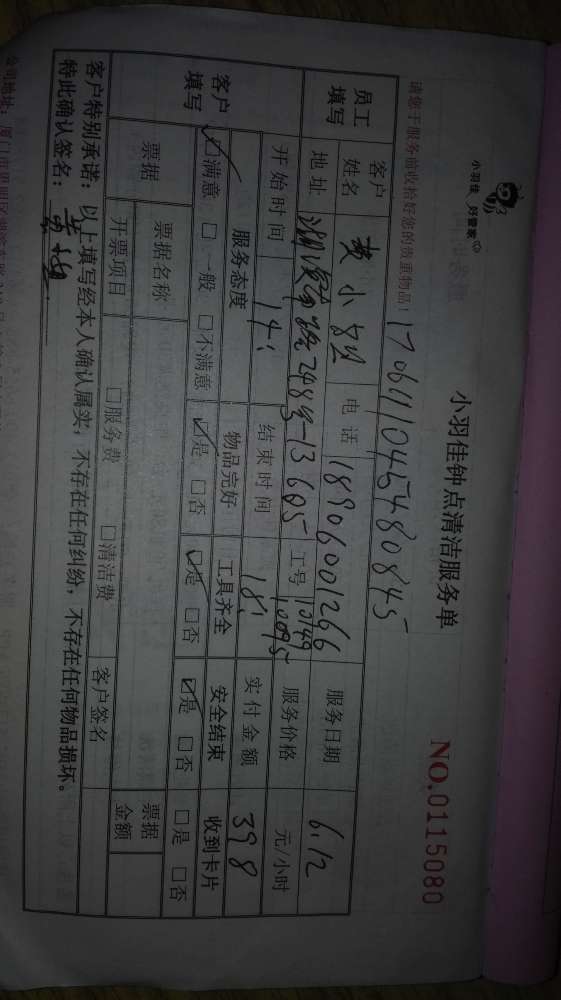 小羽佳 好管家
小羽佳钟点清洁服务单
NO.0115080
请您于服务前收拾好您的贵重物品！
员工填写
客户姓名 黄小 电话 18906001266 服务日期 6.12
地址 248号-13 605 工号 10149 10095 服务价格 元/小时
开始时间 14: 结束时间 18: 实付金额 398
客户填写
服务态度 物品完好 工具齐全 安全结束 收到卡片
☑满意 □一般 □不满意 ☑是 □否 ☑是 □否 ☑是 □否 □是 □否
票据 票据名称 票据金额
开票项目 □服务费 □清洁费 客户签名
客户特别承诺：以上填写经本人确认属实，不存在任何纠纷，不存在任何物品损坏。
特此确认签名：
公司地址：厦门市思明区